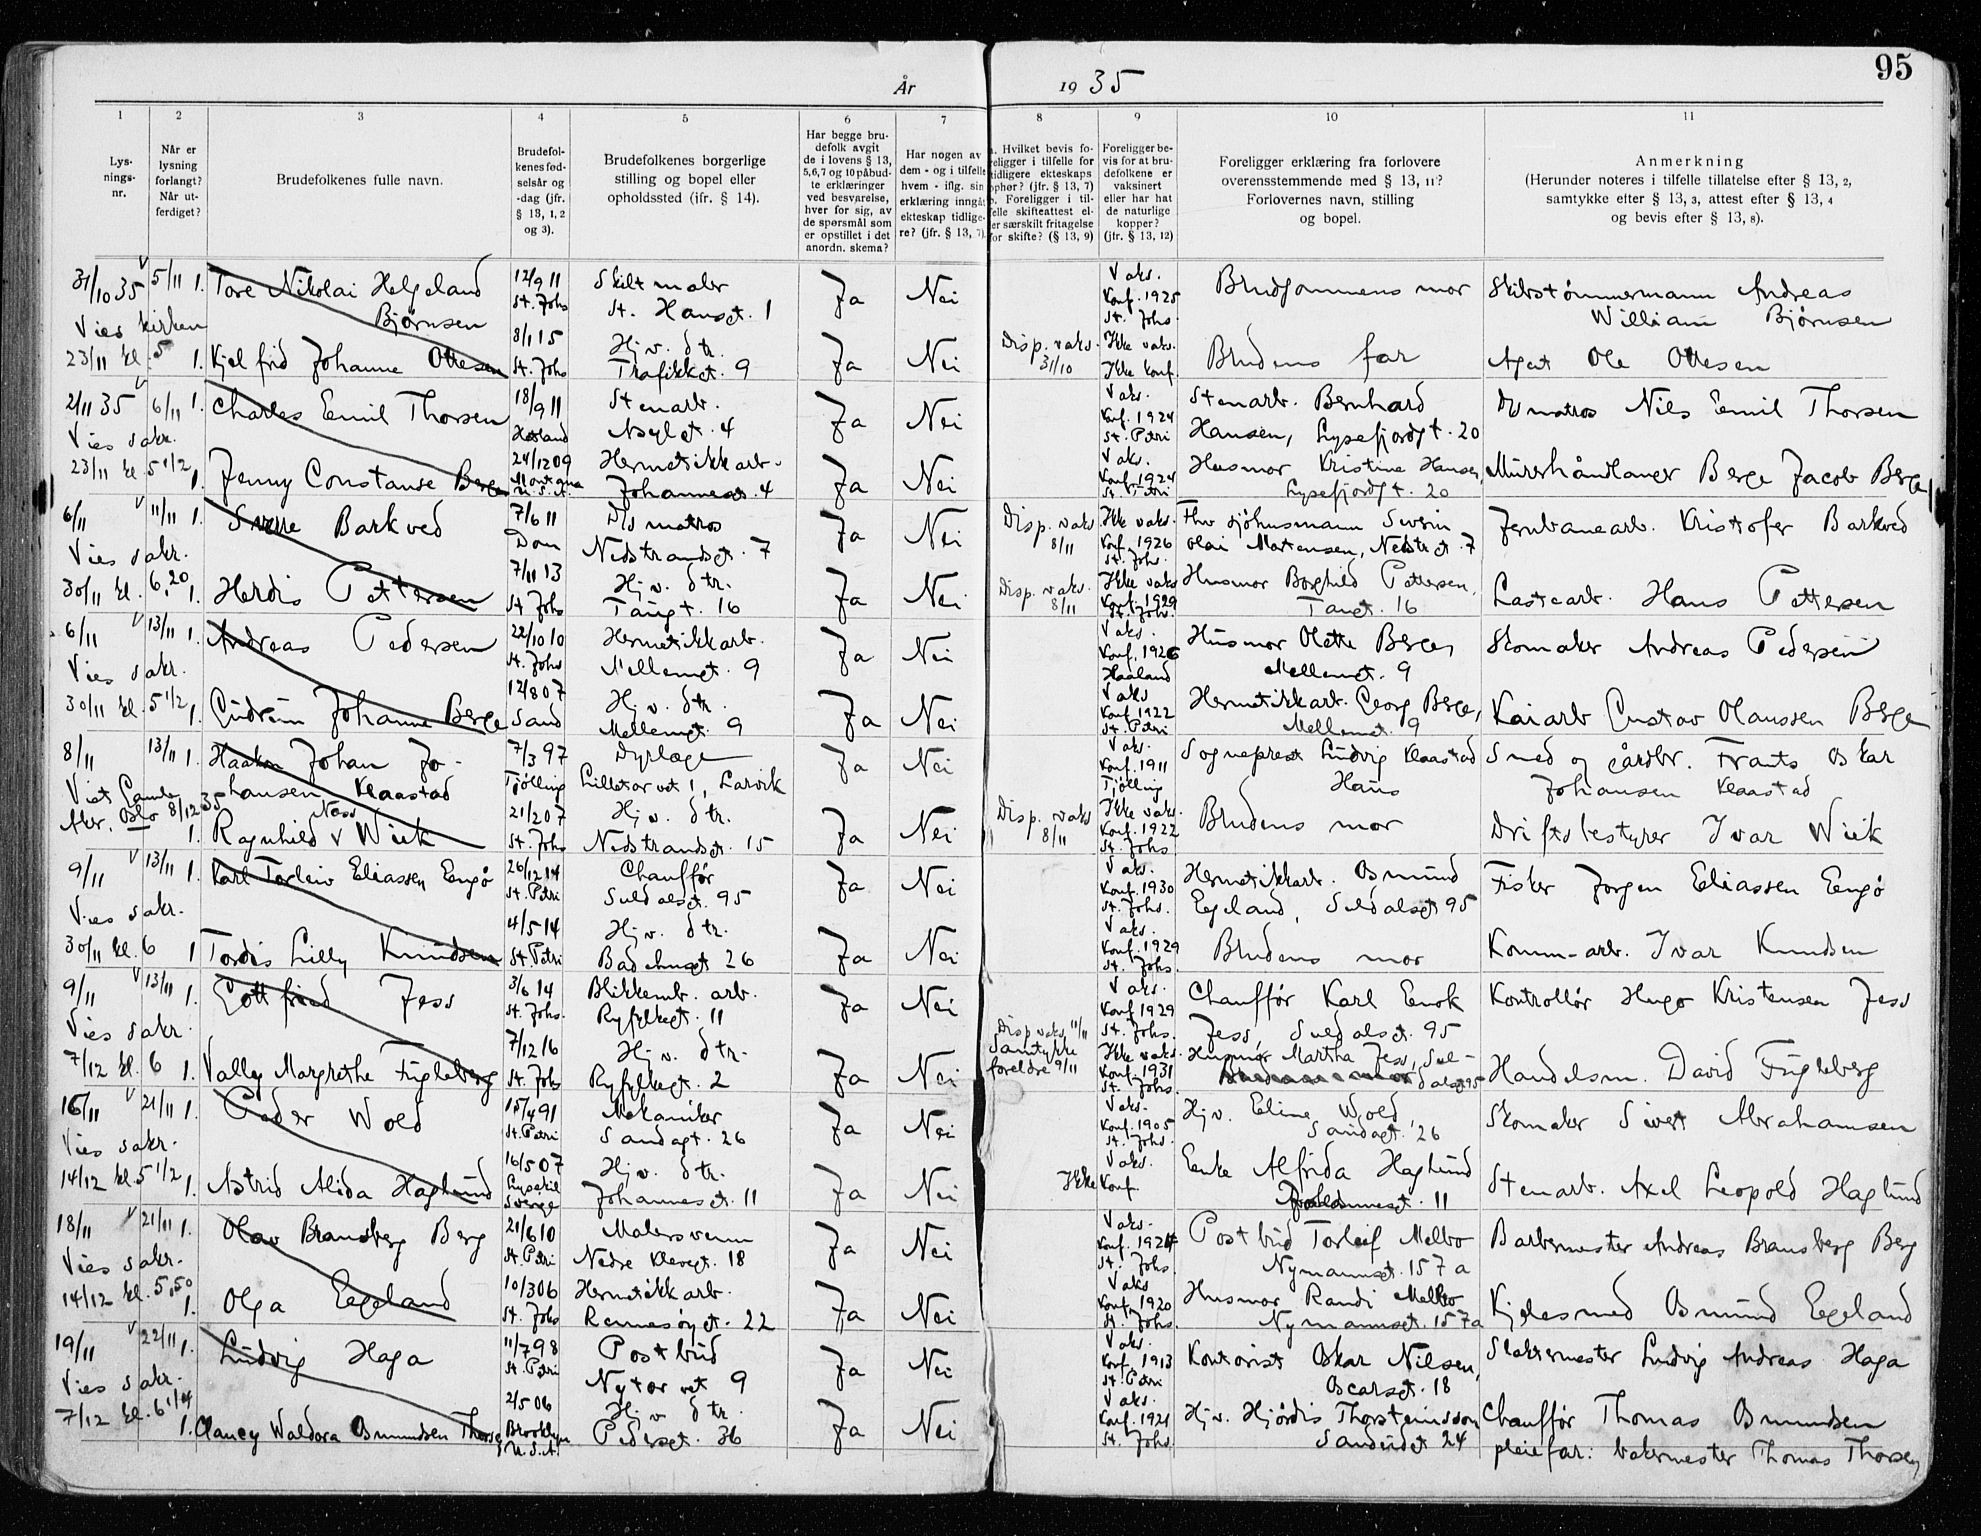 95
År 1935
1 2 3 4 5 6 7 8 9 10 11
Lys-
nings-
nr.
Når er
lysning
forlangt?
Når ut-
ferdiget?
Brudefolkenes fulle navn.
Brudefol-
kenes fød-
selsår og
-dag (jfr.
§ 13, 1, 2
og 3).
Brudefolkenes borgerlige
stilling og bopel eller
opholdssted (jfr. § 14).
Har begge bru-
defolk avgit
de i lovens § 13,
5,6,7 og 10 påbud-
te erklæringer
ved besvarelse,
hver for sig, av
de spørsmål som
er opstillet i det
anordn. skema?
Har nogen av
dem - og i tilfelle
hvem - iflg. sin
erklæring inngåt
ekteskap tidlige-
re? (jfr. § 13, 7)
Hvilket bevis fo-
religger i tilfelle for
tidligere ekteskaps
ophør? (jfr. § 13, 7)
b. Foreligger i til-
felle skifteattest el-
er særskilt fritagelse
for skifte? (§ 13, 9)
Foreligger be-
vis for at bru-
defolkene er
vaksinert
eller har hat
de naturlige
kopper?
(jfr. § 13, 12)
Foreligger erklæring fra forlovere
overensstemmende med § 13, 11?
Forlovernes navn, stilling
og bopel.
Anmerkning
(Herunder noteres i tilfelle tillatelse efter § 13, 2,
samtykke efter § 13, 3, attest efter § 13, 4
og bevis efter § 13, 8).
31/10 35 5/11 1. Tore Nikolai Helgeland 12/9 11 Skiltmaler Ja Nei Vaks. Brudgommens mor Skibstømmermann Andreas
Vies kirken Bjørnsen St. Johs St. Hansgt. 1 Konf. 1925 St. Johs. William Bjørnsen
23/11 kl. 5 1. Kjelfrid Johanne Ottesen 8/1 15 St. Johs Hjv. dtr. Trafikkgt. 9 Ja Nei Disp. vaks. 31/10 Ikke vaks. Ikke konf. Brudens far Agent Ole Ottesen
2/11 35 6/11 1. Charles Emil Thorsen 18/9 11 Stenarb. Ja Nei Vaks. Stenarb. Bernhard Ds matros Nils Emil Thorsen
Vies sakr. Hetland Asylgt. 4 Konf. 1924 St. Petri Hansen, Lysefjordgt. 20
23/11 kl. 5 1/2 1. Jenny Constanse Berge 24/12 09 Montana U.S.A. Hermetikkarb. Johannesgt. 4 Ja Nei Vaks. Konf. 1924 St. Petri Husmor Kristine Hansen Lysefjordgt. 20 Murerhåndlanger Berge Jacob Berge
6/11 11/11 1. Sverre Barkved 7/6 11 D/s matros Ja Nei Disp. vaks. 8/11 Ikke vaks. Fhv. sjøhusmann Svein Jernbanearb. Kristofer Barkved
Vies sakr. Dom Nedstrandsgt. 7 Konf. 1926 St. Johs. Olai Martensen, Nedstrgt. 7
30/11 kl. 6,20 1. Herdis Pettersen 7/11 13 St. Johs Hjv. dtr. Tangt. 16 Ja Nei Disp. vaks. 8/11 Ikke vaks Konf. 1929 St. Johs. Husmor Borghild Pettersen, Tangt. 16 Lastearb. Hans Pettersen
6/11 13/11 1. Andreas Pedersen 22/10 10 Hermetikkarb. Ja Nei Vaks. Husmor Olette Berge, Skomaker Andreas Pedersen
Vies sakr. St. Johs Mellemgt. 9 Konf. 1926 Haaland Mellemgt. 9
30/11 kl. 5 1/2 1. Gudrun Johanne Berge 12/8 07 Sand Hjv. dtr. Mellemgt. 9 Ja Nei Vaks Konf. 1922 St. Petri Hermetikkarb. Georg Berge, Mellemgt. 9 Kaiarb Gustav Olaussen Berge
8/11 13/11 1. Haakon Johan Jo- 7/3 97 Dyrlæge Ja Nei Vaks. Sogneprest Ludvig Klaastad Smed og gårdbr. Frants Oskar
Viet Gamle hansen Klaastad Tjølling Lilletorvet 1, Larvik Konf. 1911 Tjølling Johansen Klaastad
Aker, Oslo 8/12 35 1. Ragnhild v Næss Wiik 21/2 07 St. Johs Hjv. dtr. Nedstrandsgt. 15 Ja Nei Disp. vaks 8/11 Ikke vaks. Konf. 1922 St. Johs Brudens mor Driftsbestyrer Ivar Wiik
9/11 13/11 1. Karl Torleiv Eliassen Eengø 26/12 14 Chauffør Ja Nei Vaks. Hermetikkarb. Osmund Fisker Jørgen Eliassen Eengø
Vies sakr. St. Petri Suldalsgt. 95 Konf. 1930 St. Johs. Egeland, Suldalsgt. 95
30/11 kl. 6 1 Tordis Lilly Knudsen 4/5 14 St. Petri Hjv. dtr. Badehusgt 26 Ja Nei Vaks. Konf. 1929 St. Johs. Brudens mor Komm-arb. Ivar Knudsen
9/11 13/11 1. Gottfried Jess 3/6 14 Blikkemb. arb. Ja Nei Vaks. Chauffør Karl Enok Kontrollør Hugo Kristensen Jess
Vies sakr. St. Johs. Ryfylkegt. 11 Konf. 1929 St. Johs. Jess, Suldalsgt. 95
7/12 kl. 6 1. Vally Margrethe Fugleberg 7/12 16 St. Johs Hjv. dtr. Ryfylkegt. 2 Ja Nei Disp vaks. 11/11 Samtykke foreldre 9/11 Ikke vaks. Konf. 1931 St. Johs. Husmor Martha Jess, Suldalsgt 95 Handelsm. David Fugleberg
16/11 21/11 1. Peder Wold 15/4 91 Mekaniker Ja Nei Vaks. Hjv. Eline Wold Skomaker Sivert Abrahamsen
Vies sakr. St. Petri Sandgt. 26 Konf. 1905 St. Johs. Sandgt. 26
14/12 kl. 5 1/2 1. Astrid Alida Haglund 16/5 07 Lysekil Sverge Hjv. dtr. Johannesgt. 11 Ja Nei Vaks. Ikke Konf Enke Alfrida Haglund Johannesgt. 11 Stenarb. Axel Leopold Haglund
18/11 21/11 1. Olav Bransberg Berg 21/6 10 Malersvenn Ja Nei Vaks. Postbud Torleif Melbo Barbermester Andreas Bransberg Berg
Vies sakr. St. Petri Nedre Klevegt. 18 Konf. 1924 St. Johs. Nymannsgt. 157a
14/12 kl. 5,50 1. Olga Egeland 10/3 06 St. Johs Hermetikkarb. Rennesøygt. 22 Ja Nei Vaks Konf. 1920 St. Johs. Husmor Randi Melbo Nymannsgt. 157a Kjelesmed Osmund Egeland
19/11 22/11 1. Ludvig Haga 11/7 98 Postbud Ja Nei Vaks. Kontorist Oskar Nilsen, Slaktermester Ludvig Andreas Haga
Vies sakr. St. Petri Nytorvet 9 Konf. 1913 St. Petri Oscarsgt. 18
7/12 kl. 6 1/4 1. Clancy Waldora Osmundsen Thorsen 2/5 06 Brooklyn U.S.A. Hjv dtr. Pedersgt. 36 Ja Nei Vaks. Konf. 1921 St. Johs Hjv. Hjørdis Thorsteinsson Sandeidgt 24 Chauffør Thomas Osmundsen
pleiefar: bakermester Thomas Thorsen